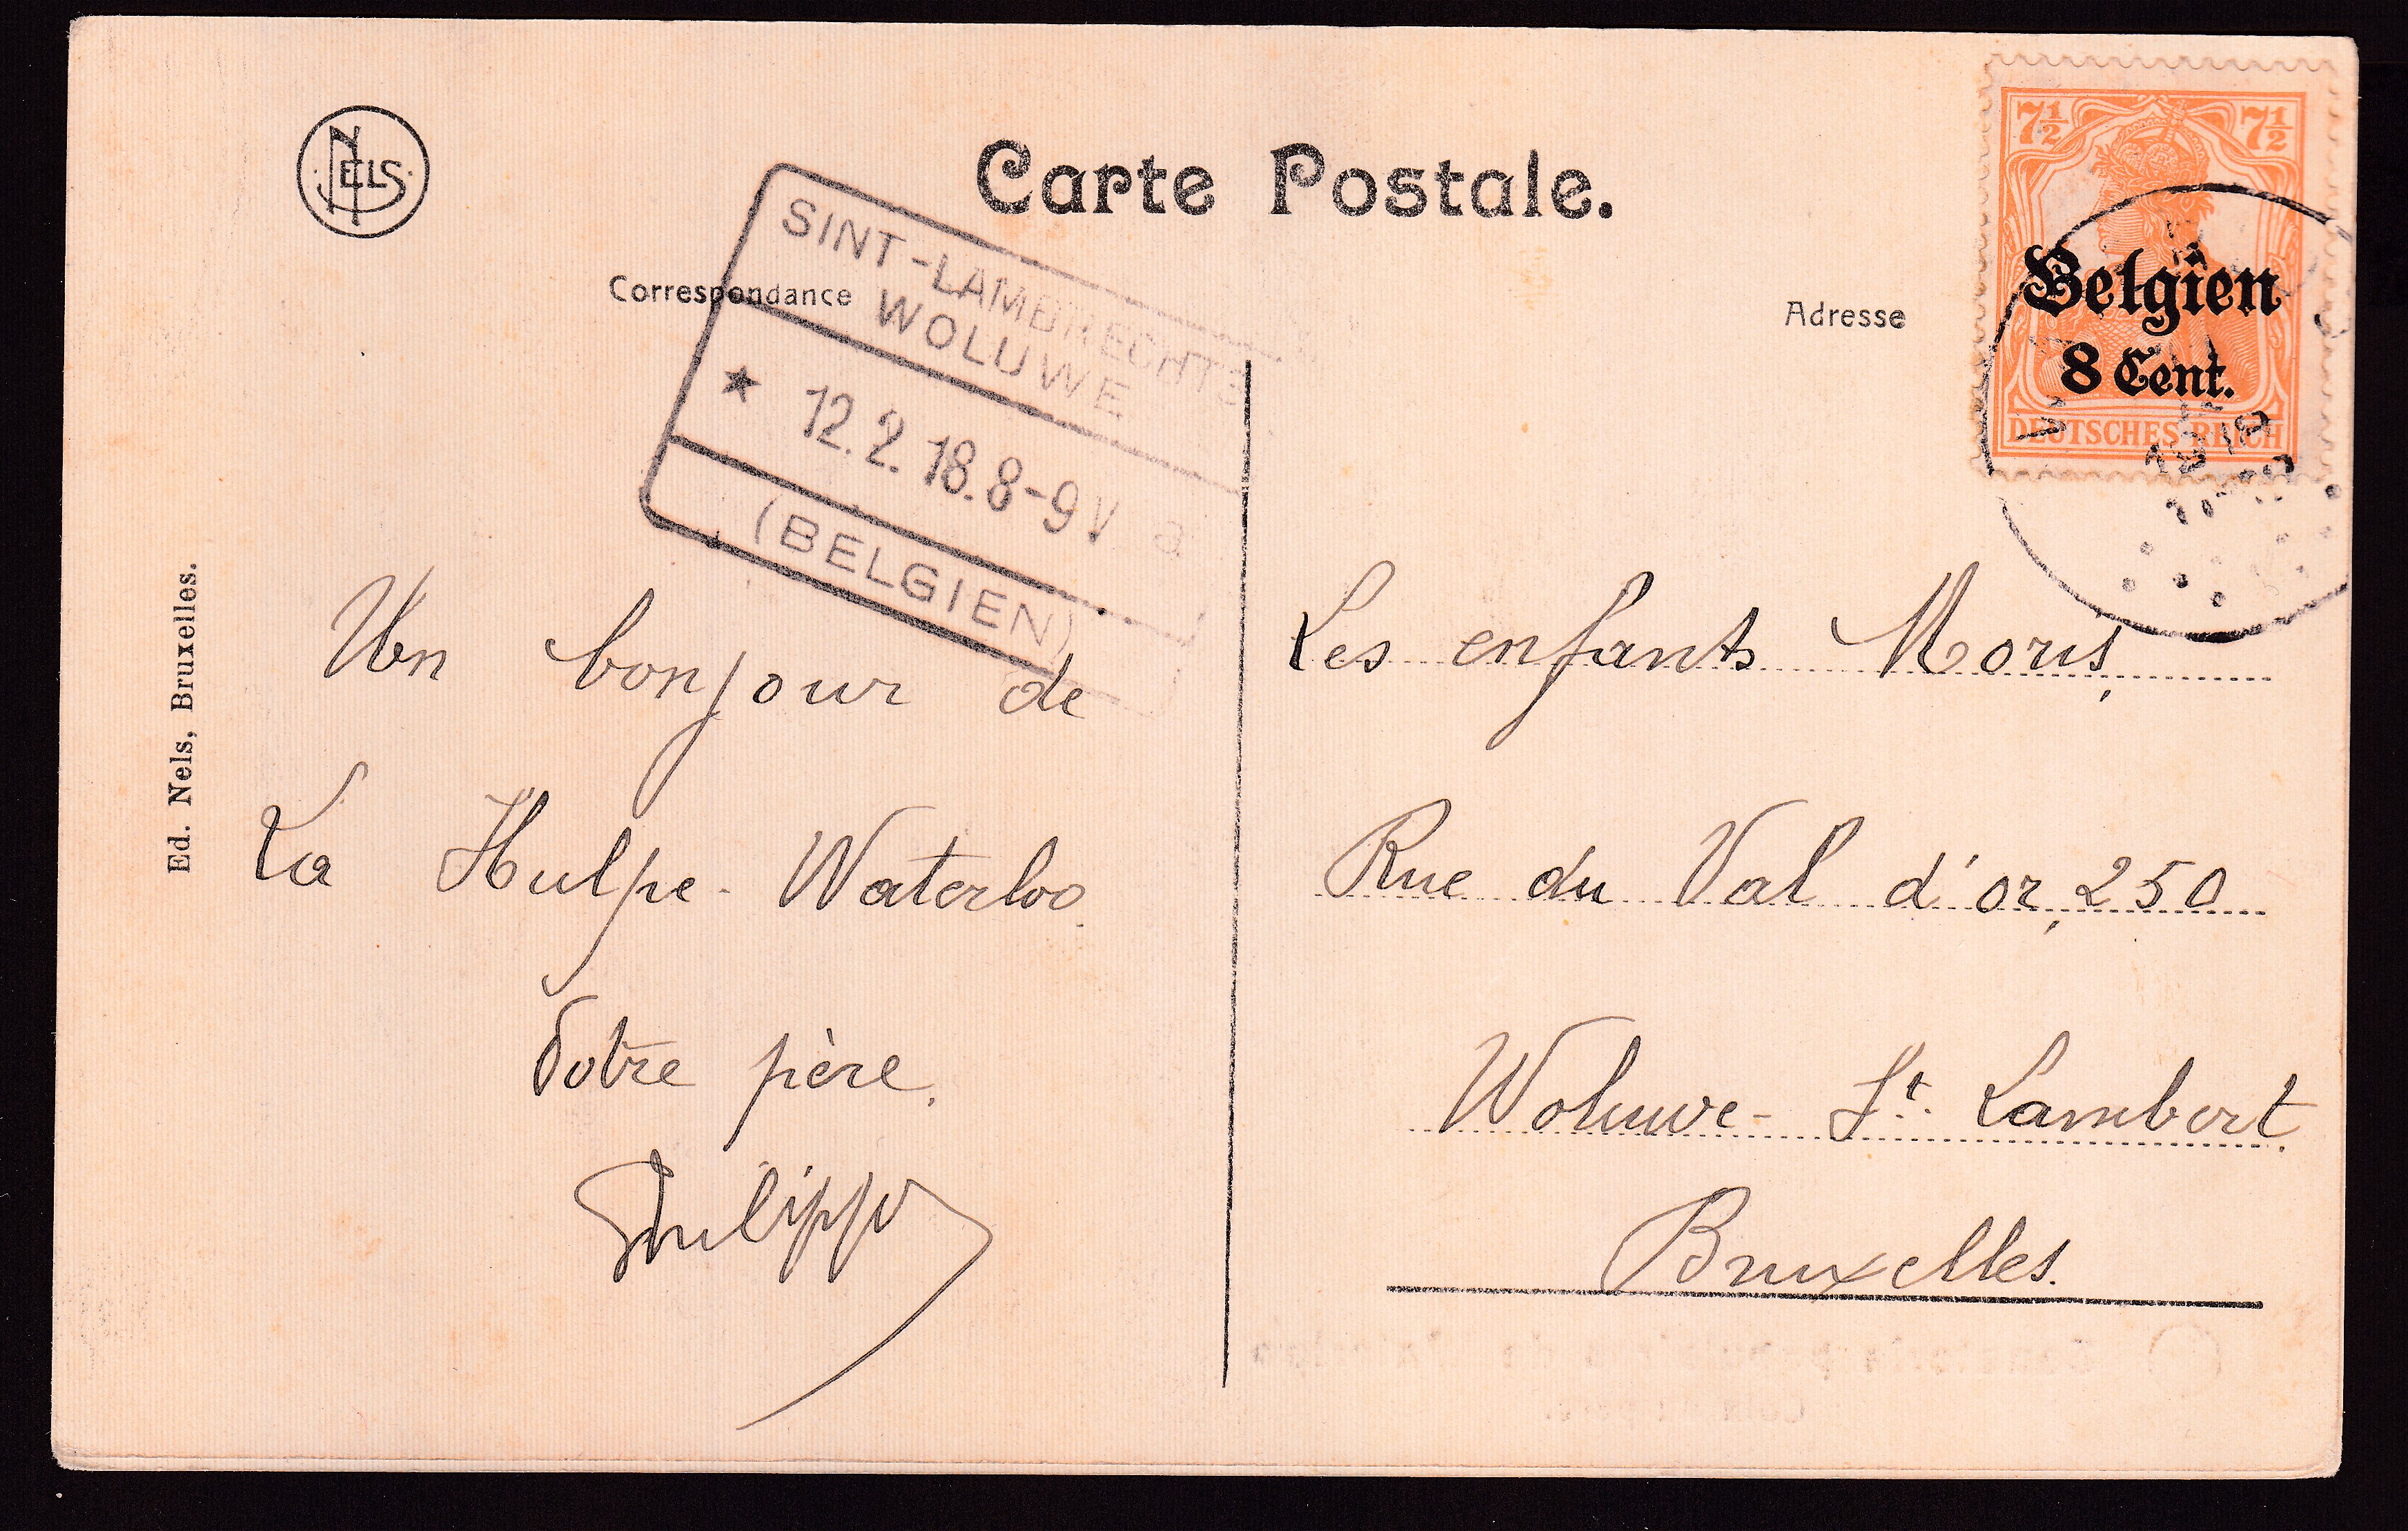 NELS
Carte Postale.
Correspondance
Adresse
SINT-LAMBRECHTS
WOLUWE
★ 12.2.18.8-9V a
(BELGIEN)
7½ 7½
Belgien
8 Cent.
DEUTSCHES REICH
1918
Ed. Nels, Bruxelles.
Un bonjour de
La Hulpe - Waterloo.
Votre père.
Philippe
Les enfants Moris,
Rue du Val d'or, 250
Woluwe - St. Lambert.
Bruxelles.